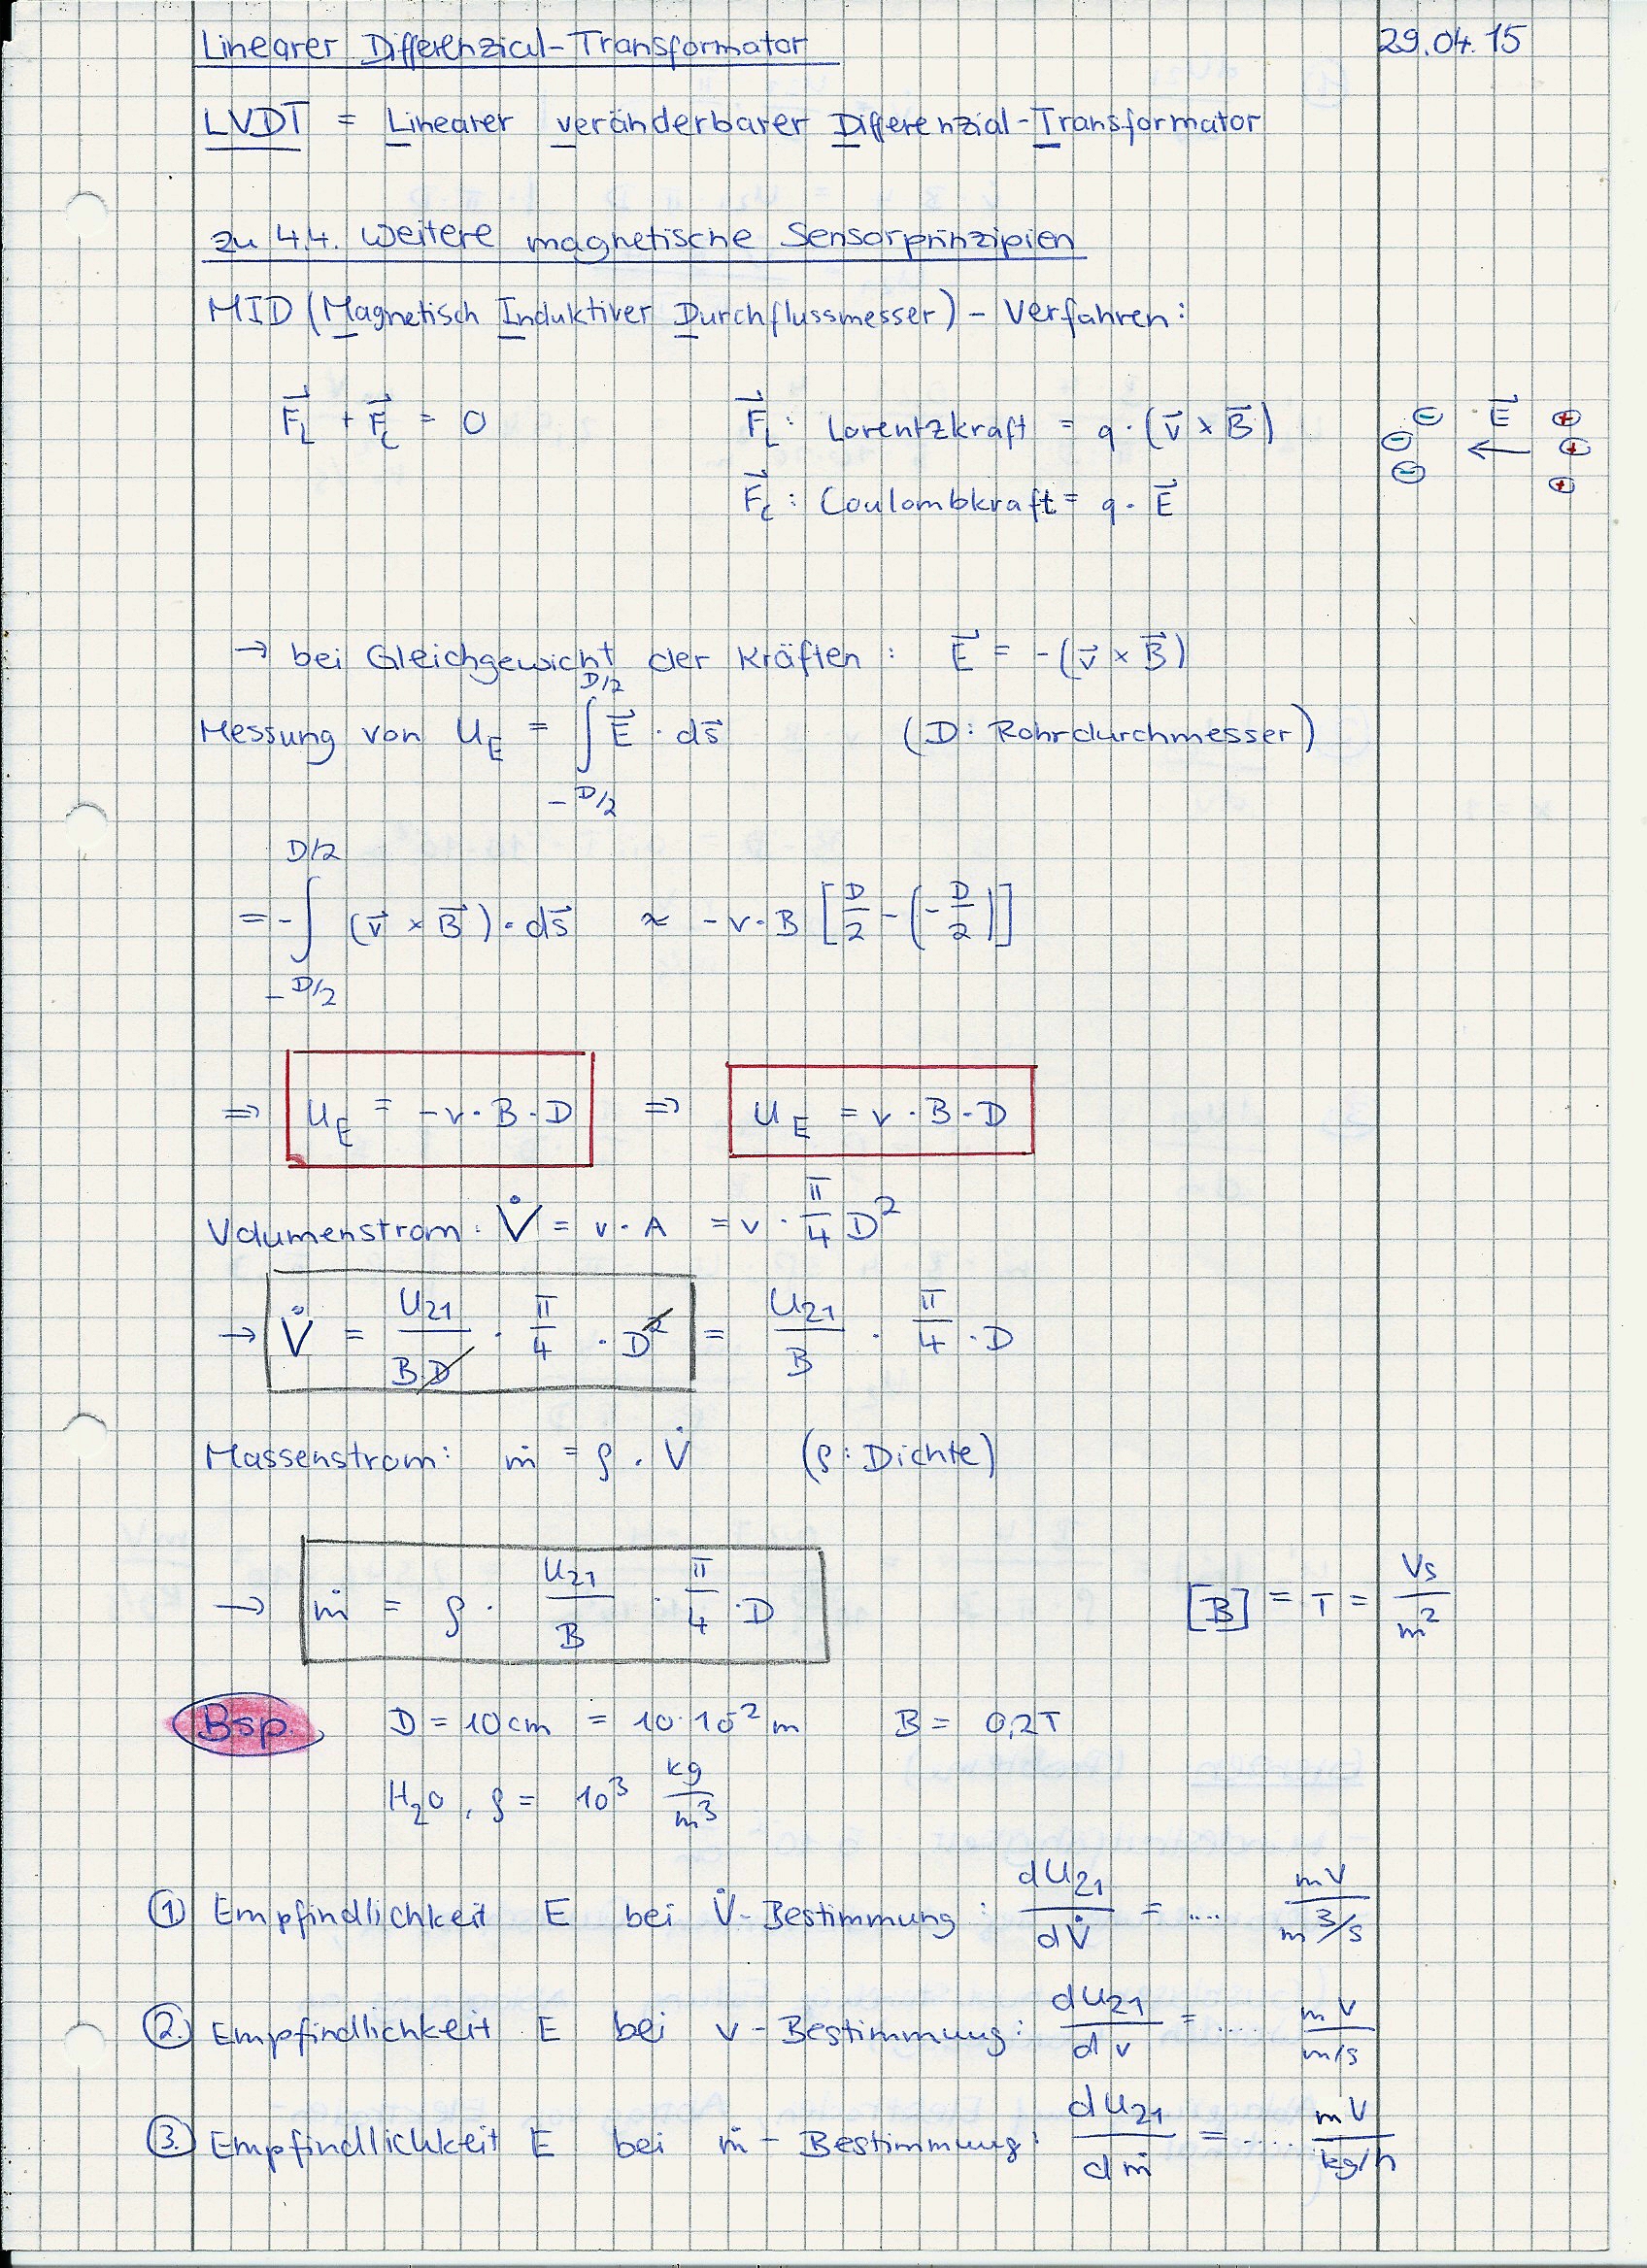 Linearer Differenzial-Transformator 29.04.15
LVDT = Linearer veränderbarer Differenzial-Transformator
zu 4.4. weitere magnetische Sensorprinzipien
MID (Magnetisch Induktiver Durchflussmesser) - Verfahren:
F⃗_L + F⃗_C = 0 F⃗_L : Lorentzkraft = q · (v⃗ × B⃗) ⊖ E⃗ ⊕
⊖ ← ⊕
F⃗_C : Coulombkraft = q · E⃗ ⊖ ⊕
→ bei Gleichgewicht der Kräften : E⃗ = -(v⃗ × B⃗)
Messung von U_E = ∫_{-D/2}^{D/2} E⃗ · ds⃗ (D: Rohrdurchmesser)
= -∫_{-D/2}^{D/2} (v⃗ × B⃗) · ds⃗ ≈ -v · B [D/2 - (-D/2)]
⇒ U_E = -v · B · D ⇒ U_E = v · B · D
Volumenstrom: V̇ = v · A = v · π/4 D²
→ V̇ = U₂₁/(B·D) · π/4 · D² = U₂₁/B · π/4 · D
Massenstrom: ṁ = ρ · V̇ (ρ: Dichte)
→ ṁ = ρ · U₂₁/B · π/4 · D [B] = T = Vs/m²
Bsp. D = 10cm = 10·10⁻² m B = 0,2T
H₂O, ρ = 10³ kg/m³
① Empfindlichkeit E bei V̇-Bestimmung: dU₂₁/dV̇ = .... mV/(m³/s)
② Empfindlichkeit E bei v-Bestimmung: dU₂₁/dv = .... mV/(m/s)
③ Empfindlichkeit E bei ṁ-Bestimmung: dU₂₁/dṁ = .... mV/(kg/h)